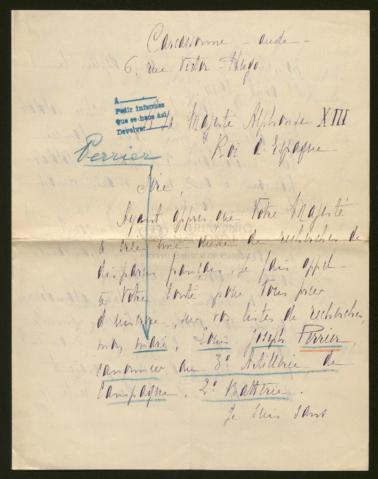 Carcassonne - aude -
6, rue Victor Hugo
A
Pedir informes
que se hace así
Devolver
Majesté Alphonse XIII
Roi d'Espagne
Perrier
Sire,
Ayant appris que Votre Majesté
a créé une de recherches de
disparus français, je fais appel
à Votre bonté pour Vous prier
d'inscrire, sur vos listes de recherches
mon mari, Louis Joseph Perrier,
canonnier au 3e Artillerie de
Campagne, 2e Batterie.
Je suis sans